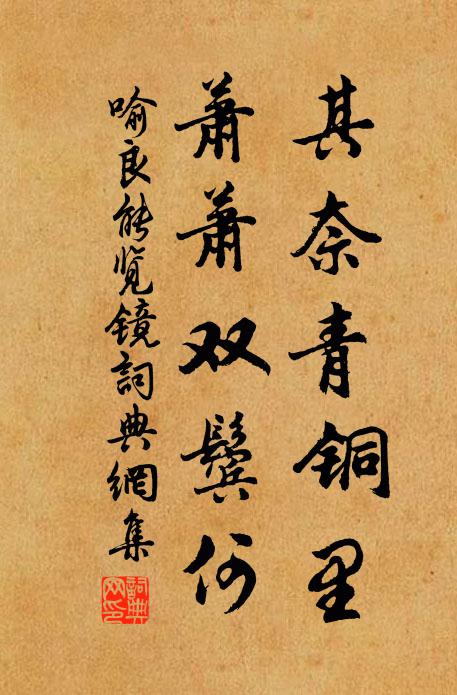 其奈青铜里
萧萧双鬓何
喻良能览镜詞典網集
詞典
网印